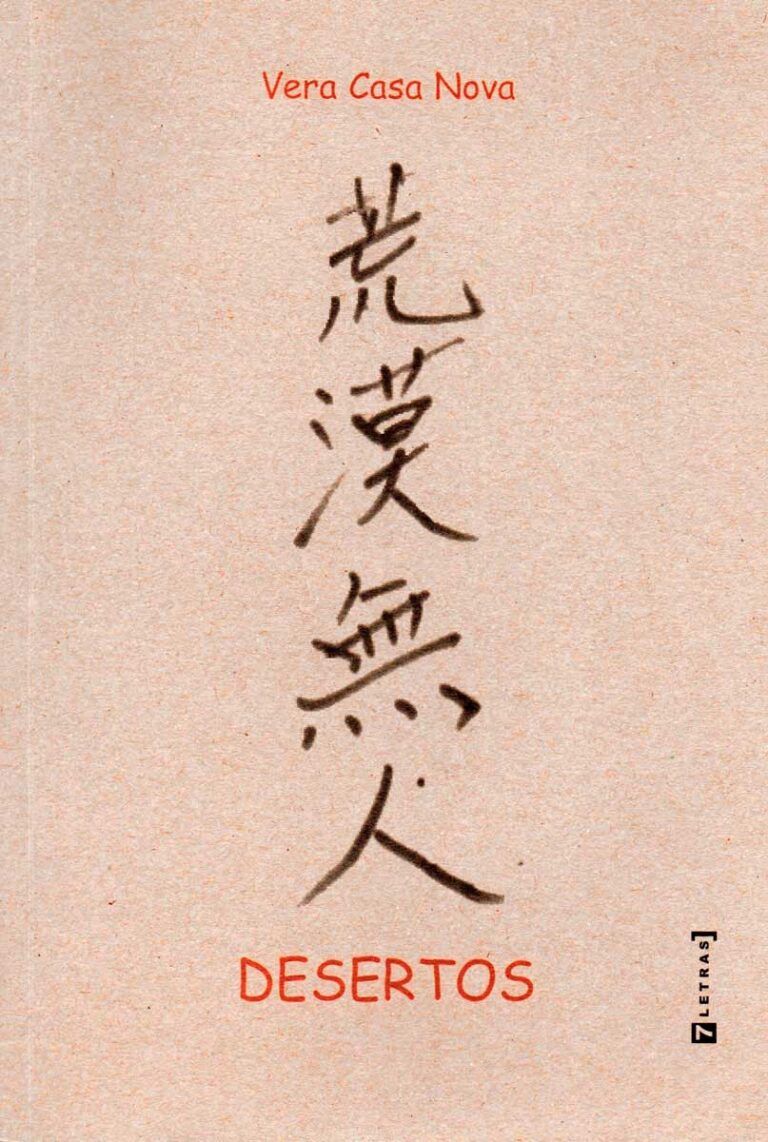 Vera Casa Nova
荒漠無人
DESERTOS
7LETRAS